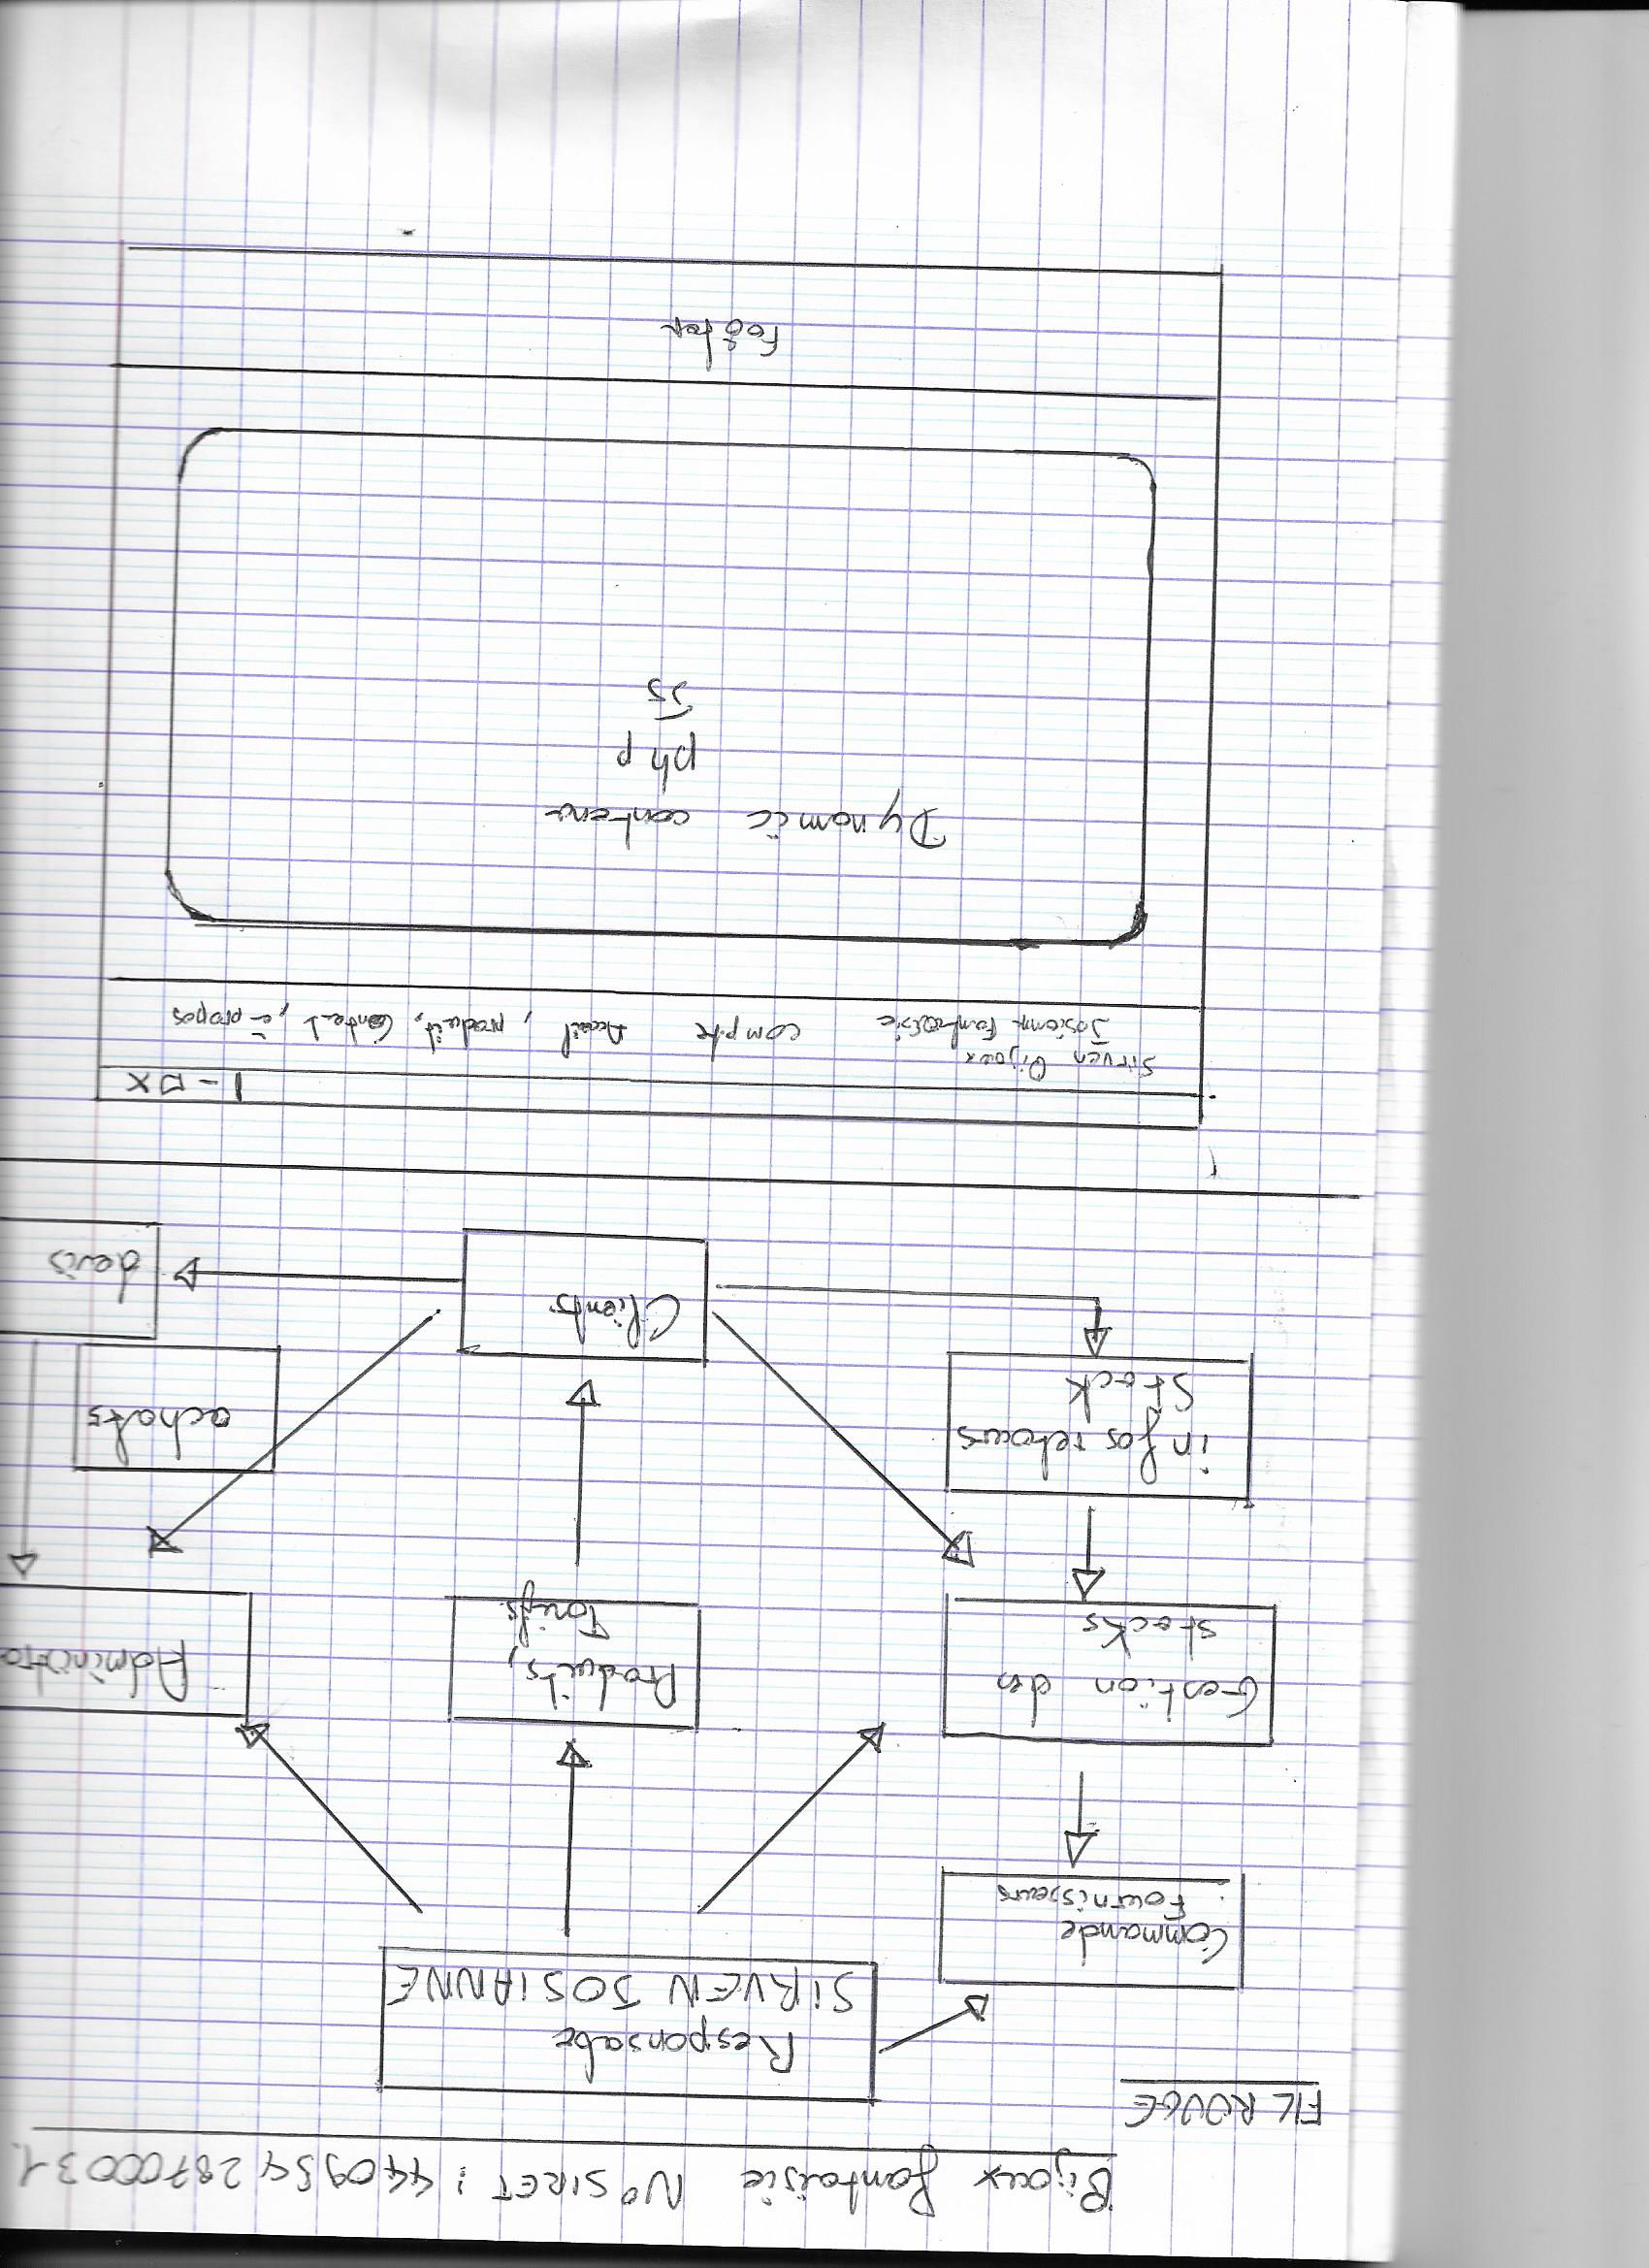 Bijoux fantaisie N° SIRET : 44095428700031.
FIL ROUGE
Responsable
SIRVEN JOSIANNE
Commande
Fournisseurs
Gestion des
stocks
Produits,
Tarifs
Administra
infos retours
Stock
achats
Clients
devis
Sirven Bijoux
Josiann Fantaisie compte Accueil, produit, Contact, à propos
Dynamic contenu
php
Js
Footer